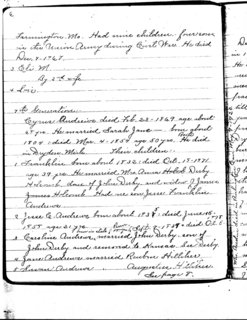 6
Farmington, Mo. Had nine children four sons
in the Union Army during Civil War. He died
Dec. 4-1867.
3. Eli M.
By 2nd wife
4. Levi.
7th Generation
Cyrus Andrews died Feb. 23-1869 age about
59 yrs. He married Sarah Jane born about
1804: died Mar. 4-1854 age 50 yrs. He died
Dryden Mich. Their children
1. Franklin born about 1832: died Oct. 15-1871
age 39 yrs. He married Mrs. Anna Holcob Derby
Holcomb, dau. of John Derby and widow of James
James Holcomb. Had one son Jesse Franklin
Andrews
2. Jesse E. Andrews, born about 1834: died June 15,
1855 age 21 yrs.
3. Caroline Andrews, married John Derby, son of
John Derby and removed to Kansas. See Derby.
4. Jane Andrews married Reuben Hilliker.
5. Andrews
See page 8.